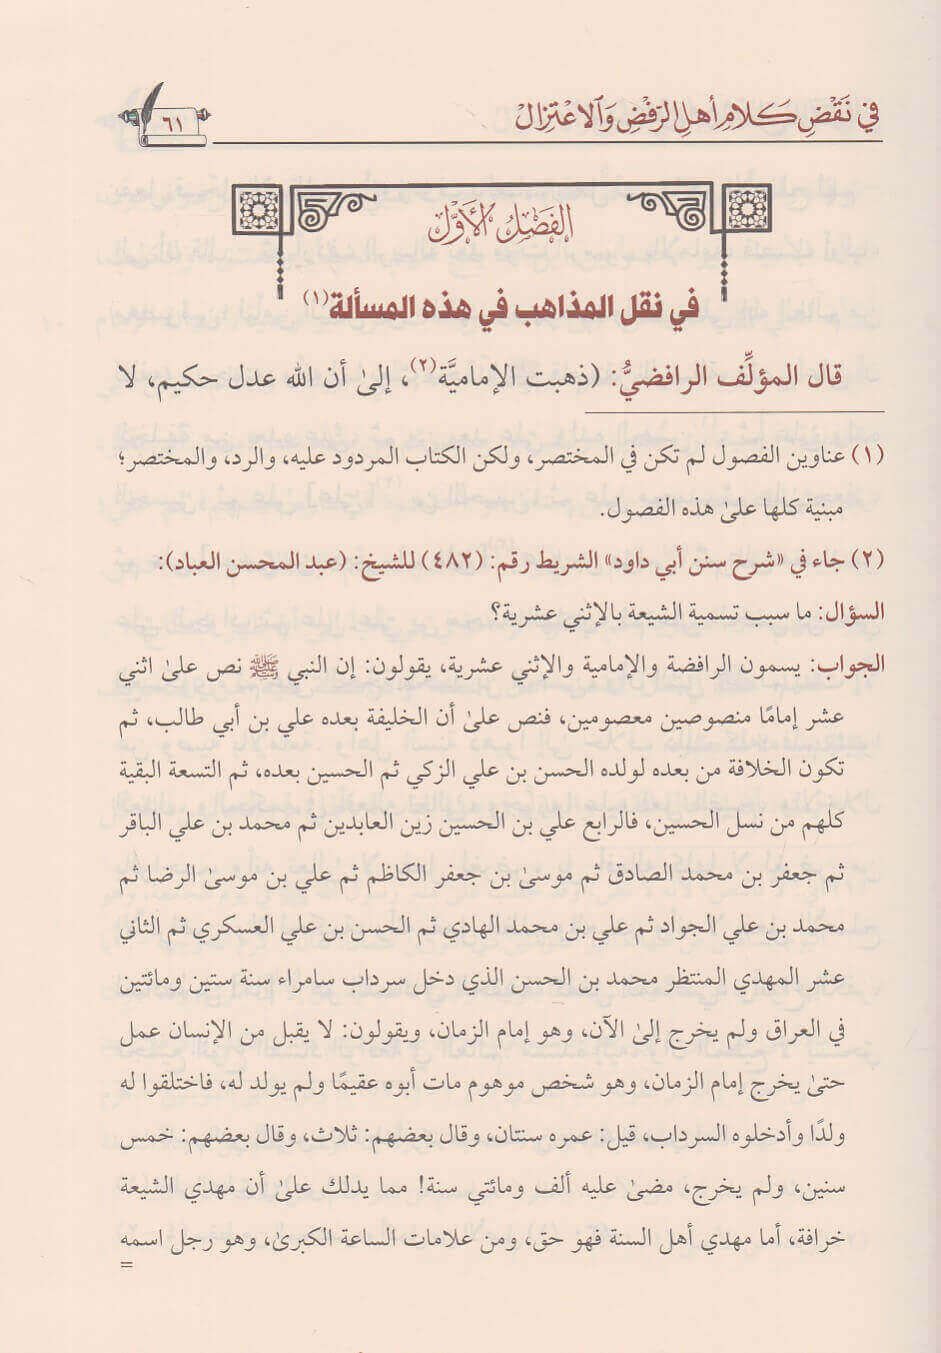 في نَقْضِ كَلَامِ أَهْلِ الرَّفْضِ وَالاعْتِزَالْ
٦١
الفَصْلُ الأَوَّلُ
في نقل المذاهب في هذه المسألة(١)
قال المؤلِّف الرافضيُّ: (ذهبت الإماميَّة(٢)، إلىٰ أن الله عدل حكيم، لا
(١) عناوين الفصول لم تكن في المختصر، ولكن الكتاب المردود عليه، والرد، والمختصر؛
مبنية كلها علىٰ هذه الفصول.
(٢) جاء في «شرح سنن أبي داود» الشريط رقم: (٤٨٢) للشيخ: (عبد المحسن العباد):
السؤال: ما سبب تسمية الشيعة بالإثني عشرية؟
الجواب: يسمون الرافضة والإمامية والإثني عشرية، يقولون: إن النبي ﷺ نص علىٰ اثني
عشر إمامًا منصوصين معصومين، فنص علىٰ أن الخليفة بعده علي بن أبي طالب، ثم
تكون الخلافة من بعده لولده الحسن بن علي الزكي ثم الحسين بعده، ثم التسعة البقية
كلهم من نسل الحسين، فالرابع علي بن الحسين زين العابدين ثم محمد بن علي الباقر
ثم جعفر بن محمد الصادق ثم موسىٰ بن جعفر الكاظم ثم علي بن موسىٰ الرضا ثم
محمد بن علي الجواد ثم علي بن محمد الهادي ثم الحسن بن علي العسكري ثم الثاني
عشر المهدي المنتظر محمد بن الحسن الذي دخل سرداب سامراء سنة ستين ومائتين
في العراق ولم يخرج إلىٰ الآن، وهو إمام الزمان، ويقولون: لا يقبل من الإنسان عمل
حتىٰ يخرج إمام الزمان، وهو شخص موهوم مات أبوه عقيمًا ولم يولد له، فاختلقوا له
ولدًا وأدخلوه السرداب، قيل: عمره سنتان، وقال بعضهم: ثلاث، وقال بعضهم: خمس
سنين، ولم يخرج، مضىٰ عليه ألف ومائتي سنة! مما يدلك علىٰ أن مهدي الشيعة
خرافة، أما مهدي أهل السنة فهو حق، ومن علامات الساعة الكبرىٰ، وهو رجل اسمه
=